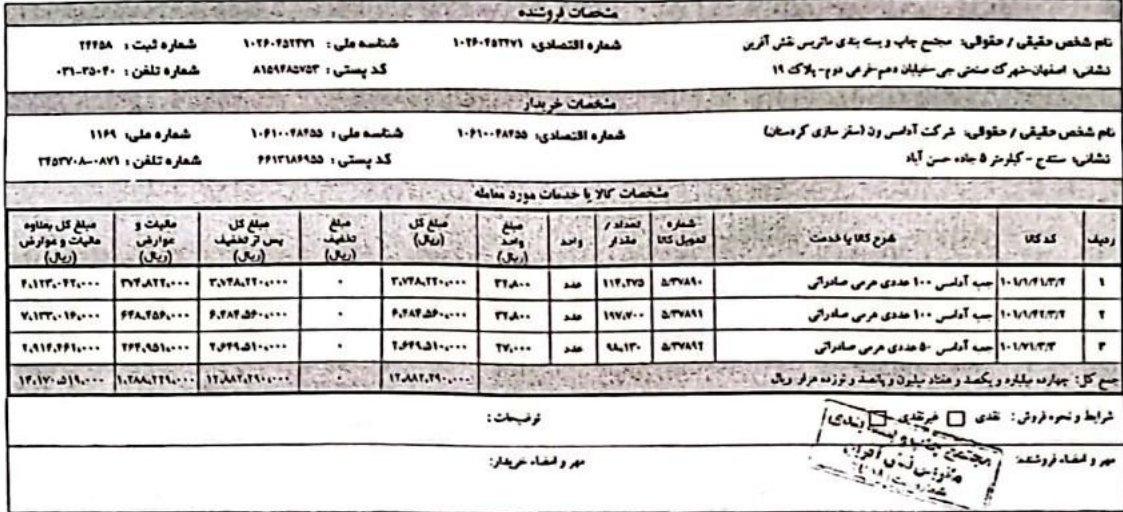 مشخصات فروشنده
نام شخص حقیقی / حقوقی: مجتمع چاپ و بسته بندی ماتریس نقش آفرین شماره اقتصادی: ۱۰۲۶۰۴۵۲۴۷۱ شناسه ملی : ۱۰۲۶۰۴۵۲۴۷۱ شماره ثبت : ۲۴۴۵۸
نشانی: اصفهان-شهرک صنعتی جی-خیابان دهم-فرعی دوم- پلاک ۱۹ کد پستی : ۸۱۵۹۴۸۵۷۵۳ شماره تلفن : ۳۵۰۴۰-۰۳۱
مشخصات خریدار
نام شخص حقیقی / حقوقی: شرکت آدامس ون (سقز سازی کردستان) شماره اقتصادی: ۱۰۶۱۰۰۴۸۴۵۵ شناسه ملی : ۱۰۶۱۰۰۴۸۴۵۵ شماره ملی: ۱۱۶۹
نشانی: سنندج - کیلومتر ۵ جاده حسن آباد کد پستی : ۶۶۱۳۱۸۶۹۵۵ شماره تلفن : ۰۸۷۱-۳۴۵۳۷۰۸
مشخصات کالا یا خدمات مورد معامله
ردیف کد کالا شرح کالا یا خدمت شماره تحویل کالا تعداد / مقدار واحد مبلغ واحد (ریال) مبلغ کل (ریال) مبلغ تخفیف مبلغ کل پس از تخفیف (ریال) مالیات و عوارض (ریال) مبلغ کل بعلاوه مالیات و عوارض (ریال)
۱ ۱۰۱/۱/۴۱/۳/۲ جعبه آدامس ۱۰۰ عددی هرمی صادراتی ۵/۳۷۸۹۰ ۱۱۴,۲۷۵ عدد ۳۲,۸۰۰ ۳,۷۴۸,۲۲۰,۰۰۰ ۰ ۳,۷۴۸,۲۲۰,۰۰۰ ۳۷۴,۸۲۲,۰۰۰ ۴,۱۲۳,۰۴۲,۰۰۰
۲ ۱۰۱/۱/۴۲/۳/۲ جعبه آدامس ۱۰۰ عددی هرمی صادراتی ۵/۳۷۸۹۱ ۱۹۷,۷۰۰ عدد ۳۲,۸۰۰ ۶,۴۸۴,۵۶۰,۰۰۰ ۰ ۶,۴۸۴,۵۶۰,۰۰۰ ۶۴۸,۴۵۶,۰۰۰ ۷,۱۳۳,۰۱۶,۰۰۰
۳ ۱۰۱/۷۱/۳/۳ جعبه آدامس ۵۰ عددی هرمی صادراتی ۵/۳۷۸۹۲ ۹۸,۱۳۰ عدد ۲۷,۰۰۰ ۲,۶۴۹,۵۱۰,۰۰۰ ۰ ۲,۶۴۹,۵۱۰,۰۰۰ ۲۶۴,۹۵۱,۰۰۰ ۲,۹۱۴,۴۶۱,۰۰۰
جمع کل: چهارده میلیارد و یکصد و هفتاد میلیون و پانصد و نوزده هزار ریال ۱۲,۸۸۲,۲۹۰,۰۰۰ ۰ ۱۲,۸۸۲,۲۹۰,۰۰۰ ۱,۲۸۸,۲۲۹,۰۰۰ ۱۴,۱۷۰,۵۱۹,۰۰۰
شرایط و نحوه فروش: نقدی غیرنقدی توضیحات :
مهر و امضاء فروشنده: مهر و امضاء خریدار:
مجتمع چاپ و بسته بندی
ماتریس نقش آفرین